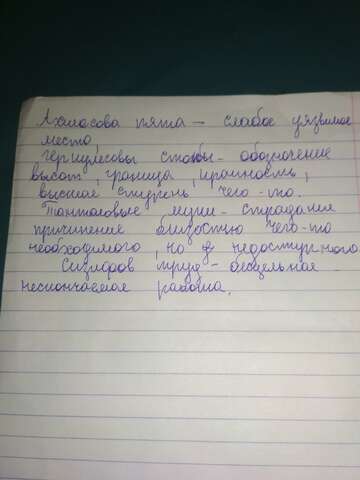 Ахилесова пята – слабое уязвимое
место,
геркулесовы столбы – обозначение
высот, граница, крайность,
высшая степень чего-то.
Танталовые муки – страдания
причинения близостью чего-то
необходимого, но недоступного
Сизифов труд – бесцельная
нескончаемая работа.